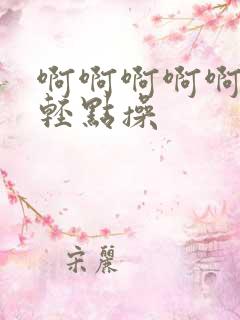 啊啊啊啊啊
輕點操
宋麗